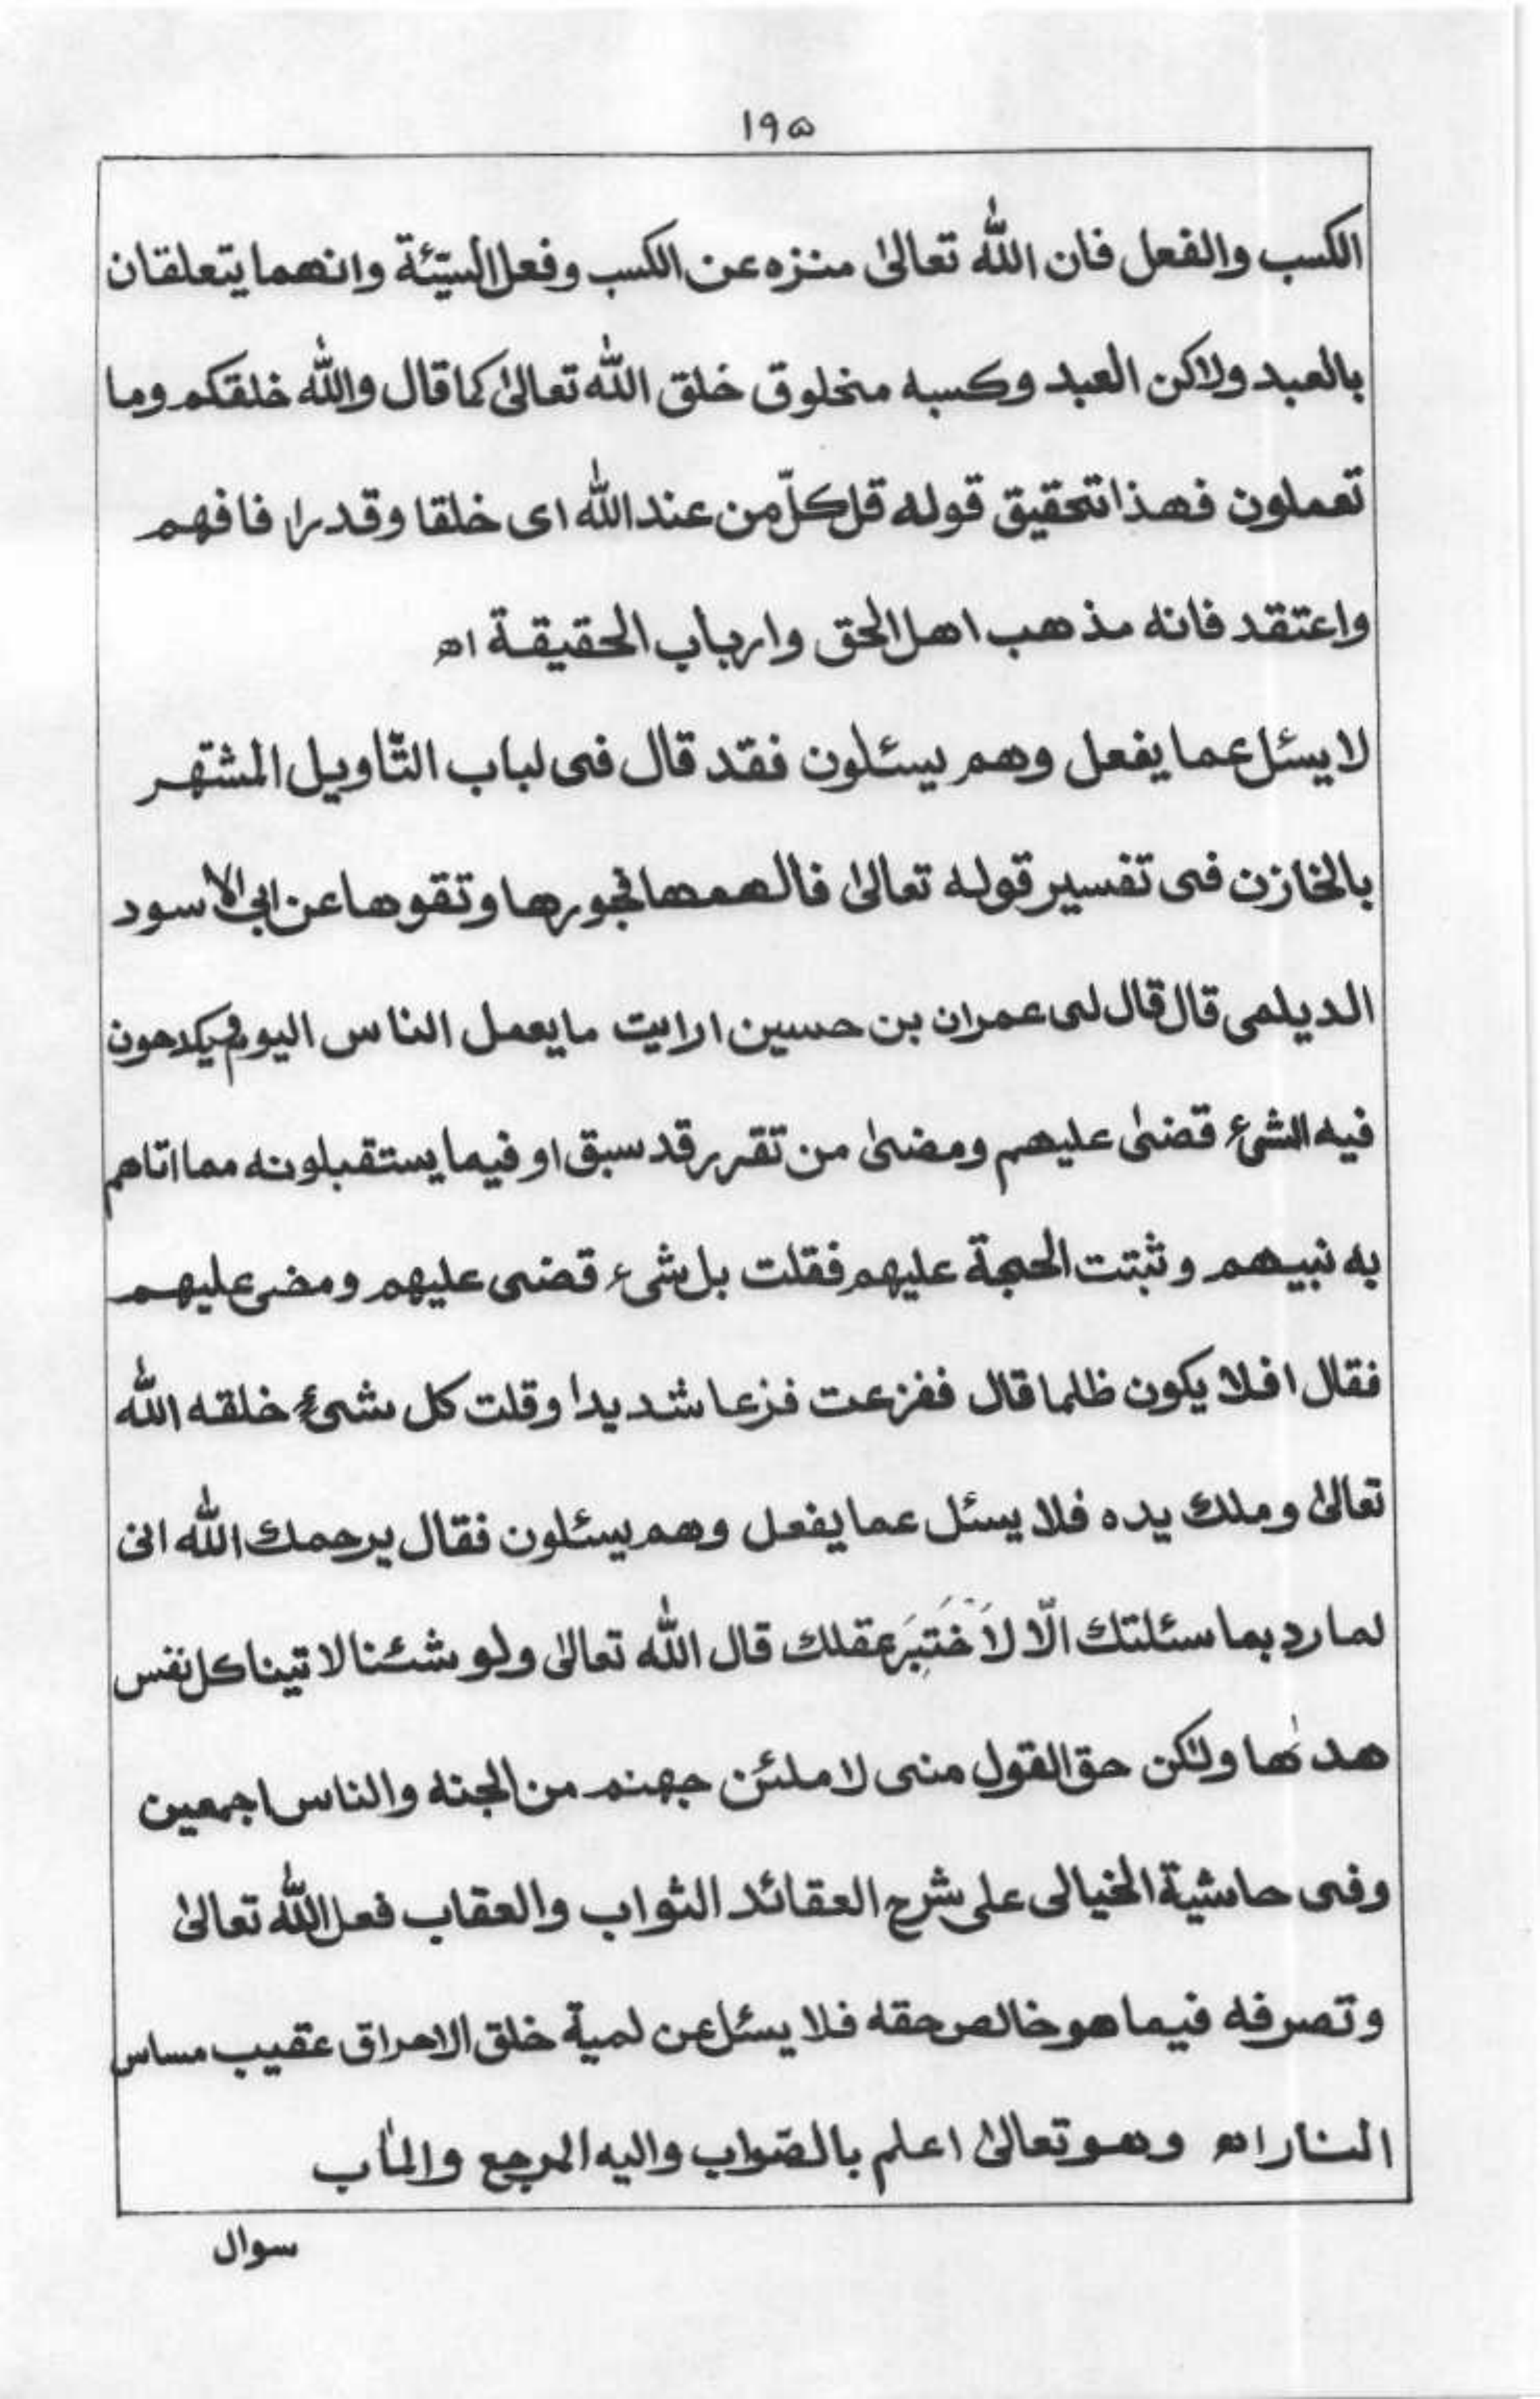 ۱۹۵
الكسب والفعل فان الله تعالىٰ منزه عن الكسب وفعل السيّئة وانهما يتعلقان
بالعبد ولاكن العبد وكسبه مخلوق خلق الله تعالىٰ كما قال والله خلقكم وما
تعملون فهذا تحقيق قوله قل كلّ من عند الله اى خلقا وقدرا فافهم
واعتقد فانه مذهب اهل الحق وارباب الحقيقة اه
لا يسئل عما يفعل وهم يسئلون فقد قال فى لباب التّاويل المشتهر
بالخازن فى تفسير قوله تعالىٰ فالهمها فجورها وتقوها عن ابى الاسود
الديلمى قال قال لى عمران بن حسين ارايت ما يعمل الناس اليوم ويكدحون
فيه الشئ قضىٰ عليهم ومضىٰ من تقرر قد سبق او فيما يستقبلونه مما اتاهم
به نبيهم وثبتت الحجة عليهم فقلت بل شىء قضى عليهم ومضى عليهم
فقال افلا يكون ظلما قال ففزعت فزعا شديدا وقلت كل شىء خلقه الله
تعالىٰ وملك يده فلا يسئل عما يفعل وهم يسئلون فقال يرحمك الله انى
لما رد بما سئلتك الّا لَاَخْتَبِرَ عقلك قال الله تعالىٰ ولو شئنا لاتينا كل نفس
هدٰها ولٰكن حق القول منى لاملئن جهنم من الجنه والناس اجمعين
وفى حاشية الخيالى على شرح العقائد الثواب والعقاب فعل الله تعالىٰ
وتصرفه فيما هو خالص حقه فلا يسئل عن لمية خلق الاحراق عقيب مساس
النار اه وهو تعالىٰ اعلم بالصّواب واليه المرجع والماٰب
سوال